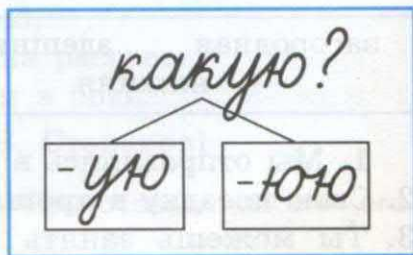 какую?
-ую -юю